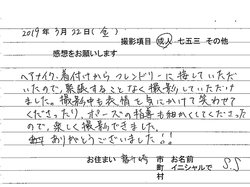 2019年3月22日(金)
撮影項目 成人 七五三 その他
感想をお願いします
ヘアメイク、着付けからフレンドリーに接していただ
いたので、緊張することなく撮影していただけ
ました。撮影中も表情を気にかけて笑わせて
くださったり、ポーズの指導も細かくしてくださった
ので、楽しく撮影できました。
ありがとうございました!!
お住まい 龍ヶ崎 市町村 お名前 イニシャルで S.S